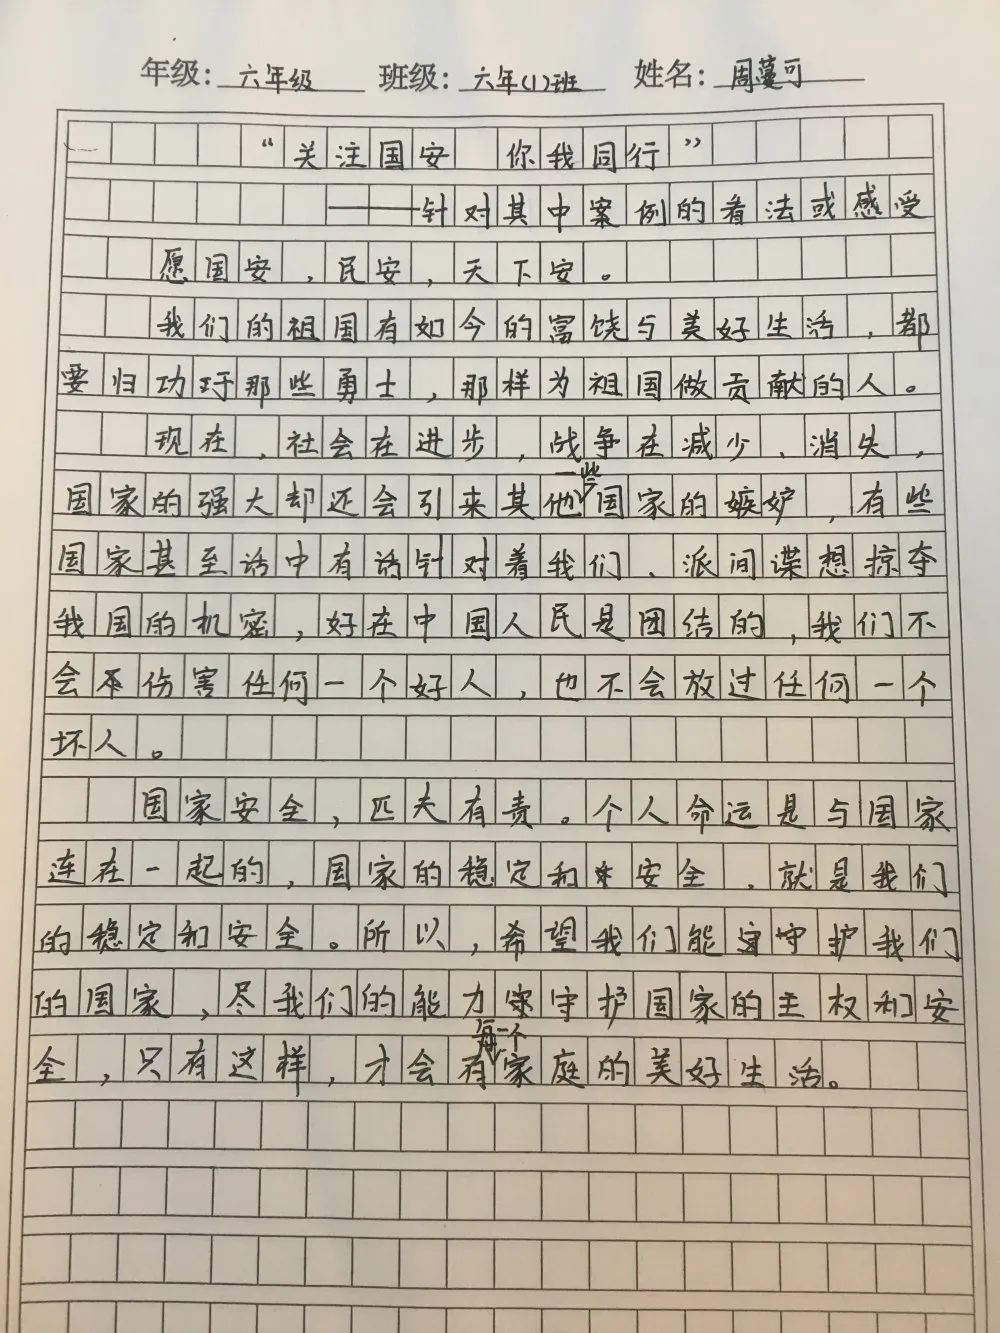 年级：六年级 班级：六年(1)班 姓名：周蔓可
“关注国安 你我同行”
——针对其中案例的看法或感受
愿国安，民安，天下安。
我们的祖国有如今的富饶与美好生活，都
要归功于那些勇士，那样为祖国做贡献的人。
现在，社会在进步，战争在减少、消失，
一些
国家的强大却还会引来其他国家的嫉妒，有些
国家甚至话中有话针对着我们、派间谍想掠夺
我国的机密，好在中国人民是团结的，我们不
会伤害任何一个好人，也不会放过任何一个
坏人。
国家安全，匹夫有责。个人命运是与国家
连在一起的，国家的稳定和安全、就是我们
的稳定和安全。所以，希望我们能守护我们
的国家，尽我们的能力守护国家的主权和安
每一个
全，只有这样，才会有家庭的美好生活。